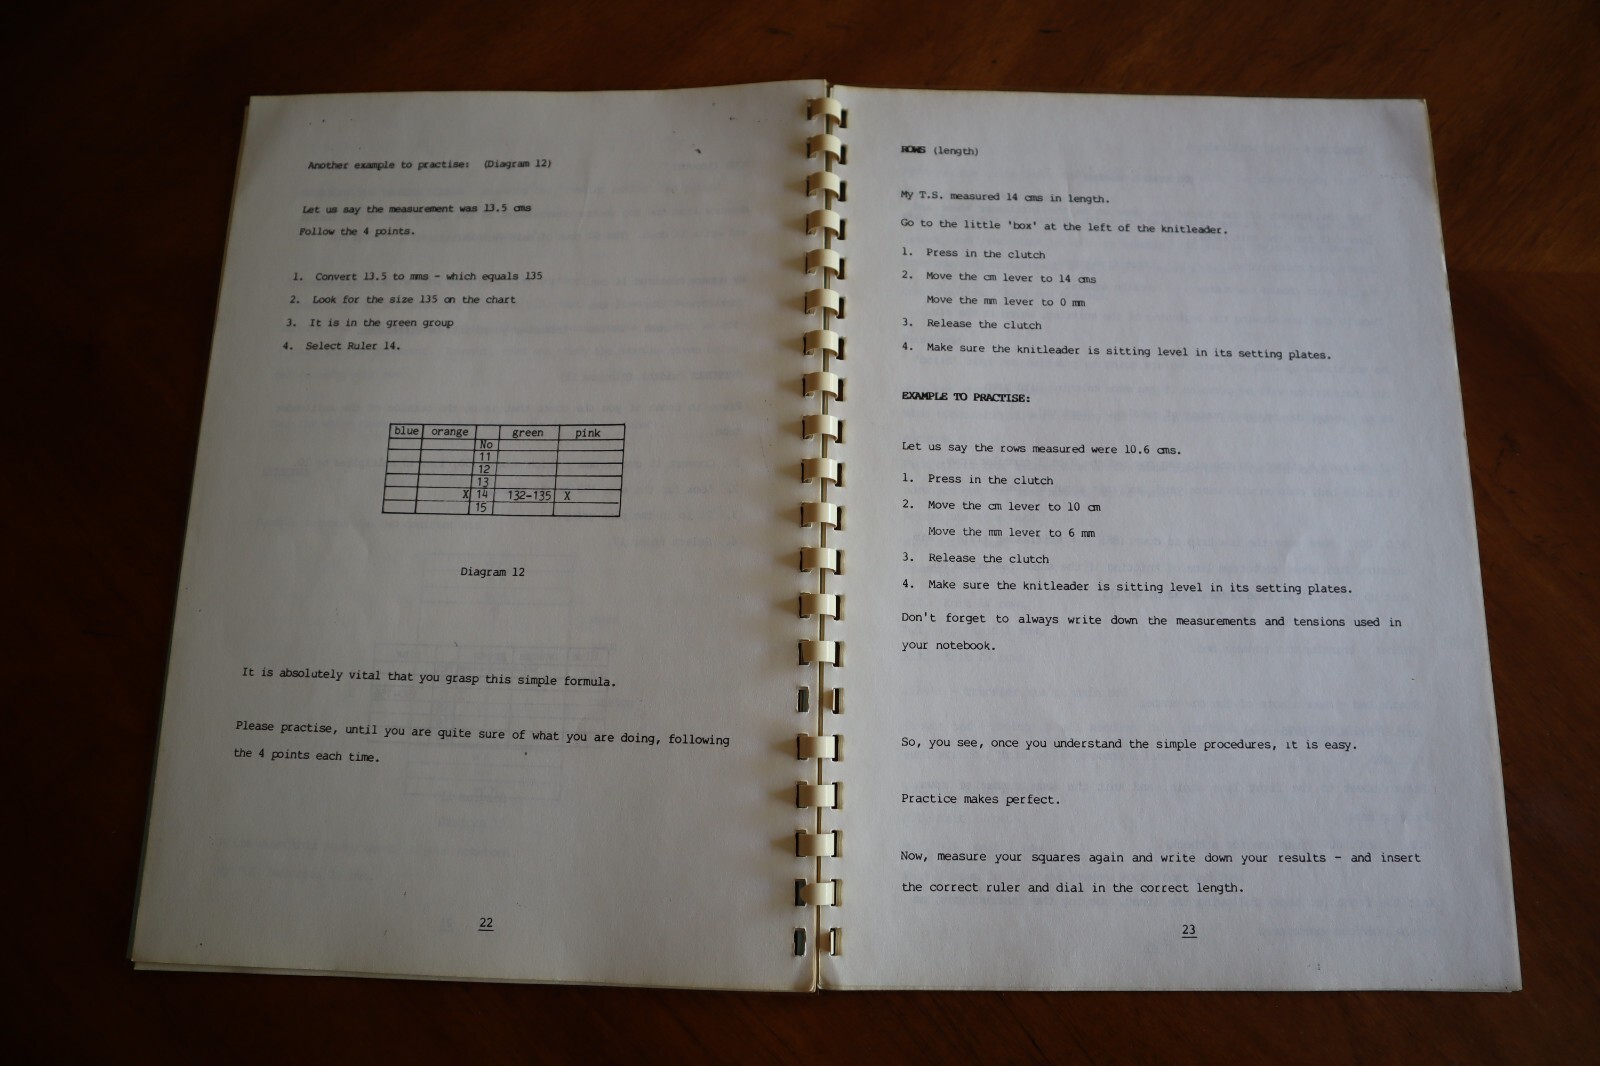 Another example to practise: (Diagram 12)
Let us say the measurement was 13.5 cms
Follow the 4 points.
1. Convert 13.5 to mms - which equals 135
2. Look for the size 135 on the chart
3. It is in the green group
4. Select Ruler 14.
blue orange green pink
No
11
12
13
X 14 132-135 X
15
Diagram 12
It is absolutely vital that you grasp this simple formula.
Please practise, until you are quite sure of what you are doing, following
the 4 points each time.
22
ROWS (length)
My T.S. measured 14 cms in length.
Go to the little 'box' at the left of the knitleader.
1. Press in the clutch
2. Move the cm lever to 14 cms
Move the mm lever to 0 mm
3. Release the clutch
4. Make sure the knitleader is sitting level in its setting plates.
EXAMPLE TO PRACTISE:
Let us say the rows measured were 10.6 cms.
1. Press in the clutch
2. Move the cm lever to 10 cm
Move the mm lever to 6 mm
3. Release the clutch
4. Make sure the knitleader is sitting level in its setting plates.
Don't forget to always write down the measurements and tensions used in
your notebook.
So, you see, once you understand the simple procedures, it is easy.
Practice makes perfect.
Now, measure your squares again and write down your results - and insert
the correct ruler and dial in the correct length.
23